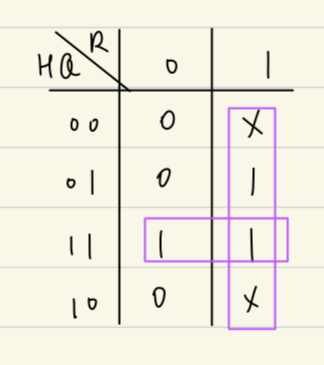 R
HQ 0 1
00 0 X
01 0 1
11 1 1
10 0 X